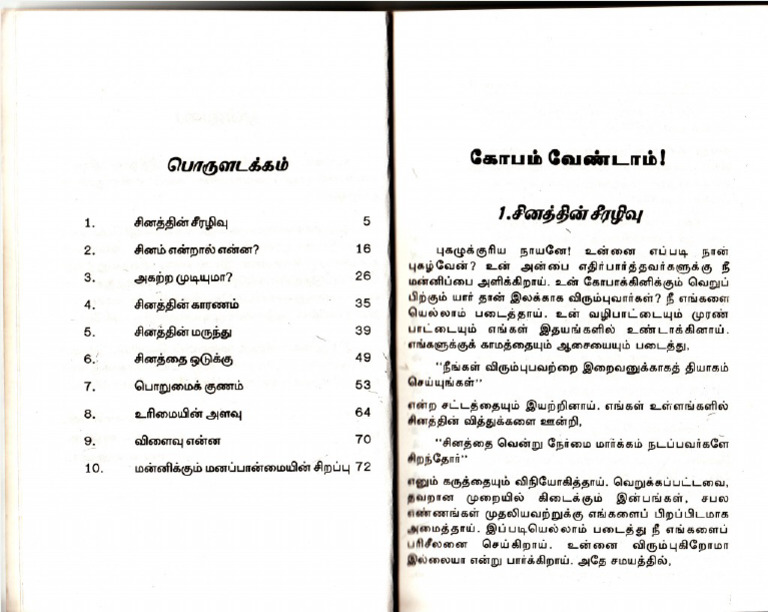 பொருளடக்கம்
1. சினத்தின் சீரழிவு 5
2. சினம் என்றால் என்ன? 16
3. அகற்ற முடியுமா? 26
4. சினத்தின் காரணம் 35
5. சினத்தின் மருந்து 39
6. சினத்தை ஒடுக்கு 49
7. பொறுமைக் குணம் 53
8. உரிமையின் அளவு 64
9. விளைவு என்ன 70
10. மன்னிக்கும் மனப்பான்மையின் சிறப்பு 72
கோபம் வேண்டாம்!
1.சினத்தின் சீரழிவு
புகழுக்குரிய நாயனே! உன்னை எப்படி நான்
புகழ்வேன்? உன் அன்பை எதிர்பார்த்தவர்களுக்கு நீ
மன்னிப்பை அளிக்கிறாய். உன் கோபாக்கினிக்கும் வெறுப்
பிற்கும் யார் தான் இலக்காக விரும்புவார்கள்? நீ எங்களை
யெல்லாம் படைத்தாய். உன் வழிபாட்டையும் முரண்
பாட்டையும் எங்கள் இதயங்களில் உண்டாக்கினாய்.
எங்களுக்குக் காமத்தையும் ஆசையையும் படைத்து,
"நீங்கள் விரும்புபவற்றை இறைவனுக்காகத் தியாகம்
செய்யுங்கள்"
என்ற சட்டத்தையும் இயற்றினாய். எங்கள் உள்ளங்களில்
சினத்தின் வித்துக்களை ஊன்றி,
"சினத்தை வென்று நேர்மை மார்க்கம் நடப்பவர்களே
சிறந்தோர்"
எனும் கருத்தையும் விநியோகித்தாய். வெறுக்கப்பட்டவை,
தவறான முறையில் கிடைக்கும் இன்பங்கள், சபல
எண்ணங்கள் முதலியவற்றுக்கு எங்களைப் பிறப்பிடமாக
அமைத்தாய். இப்படியெல்லாம் படைத்து நீ எங்களைப்
பரிசீலனை செய்கிறாய். உன்னை விரும்புகிறோமா
இல்லையா என்று பார்க்கிறாய். அதே சமயத்தில்,